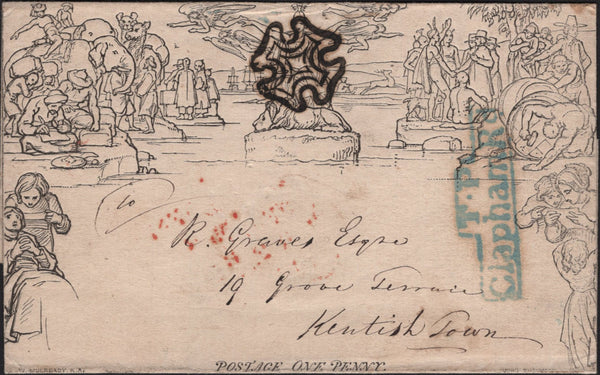 T.P.
Clapham Rd
To
R. Graves Esqre
19 Grove Terrace
Kentish Town
W. MULREADY. R.A.
POSTAGE ONE PENNY.